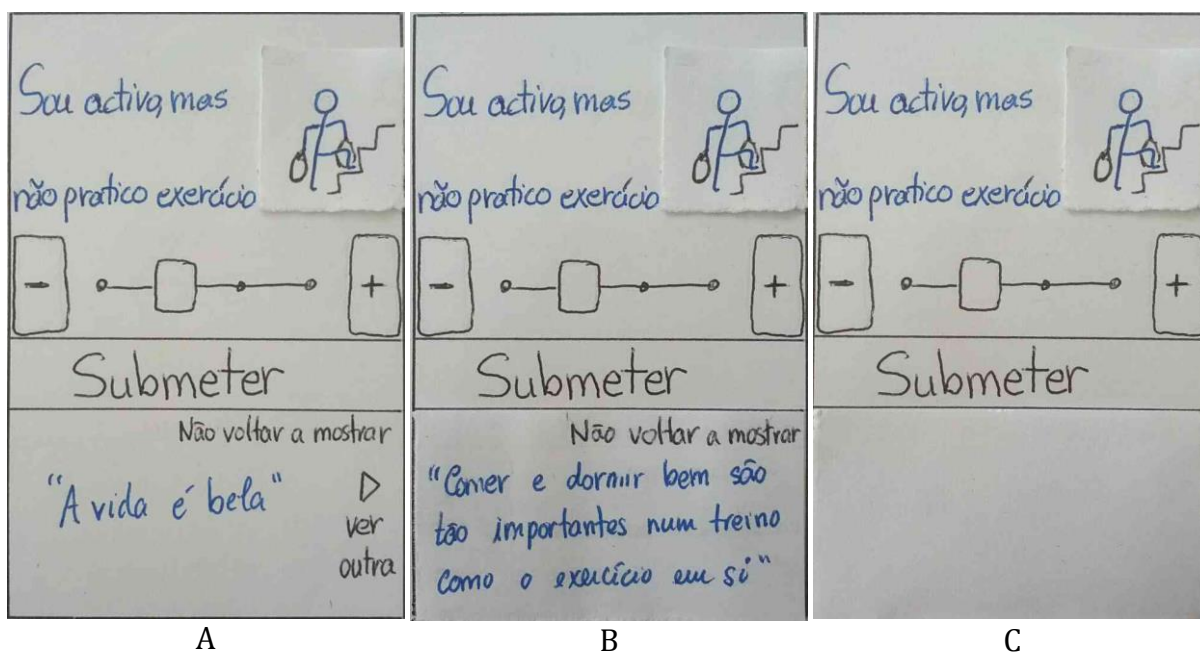 Sou activo, mas
não pratico exercício
-
+
Submeter
Não voltar a mostrar
"A vida é bela"
ver
outra
A
Sou activo, mas
não pratico exercício
-
+
Submeter
Não voltar a mostrar
"Comer e dormir bem são
tão importantes num treino
como o exercício em si"
B
Sou activo, mas
não pratico exercício
-
+
Submeter
C